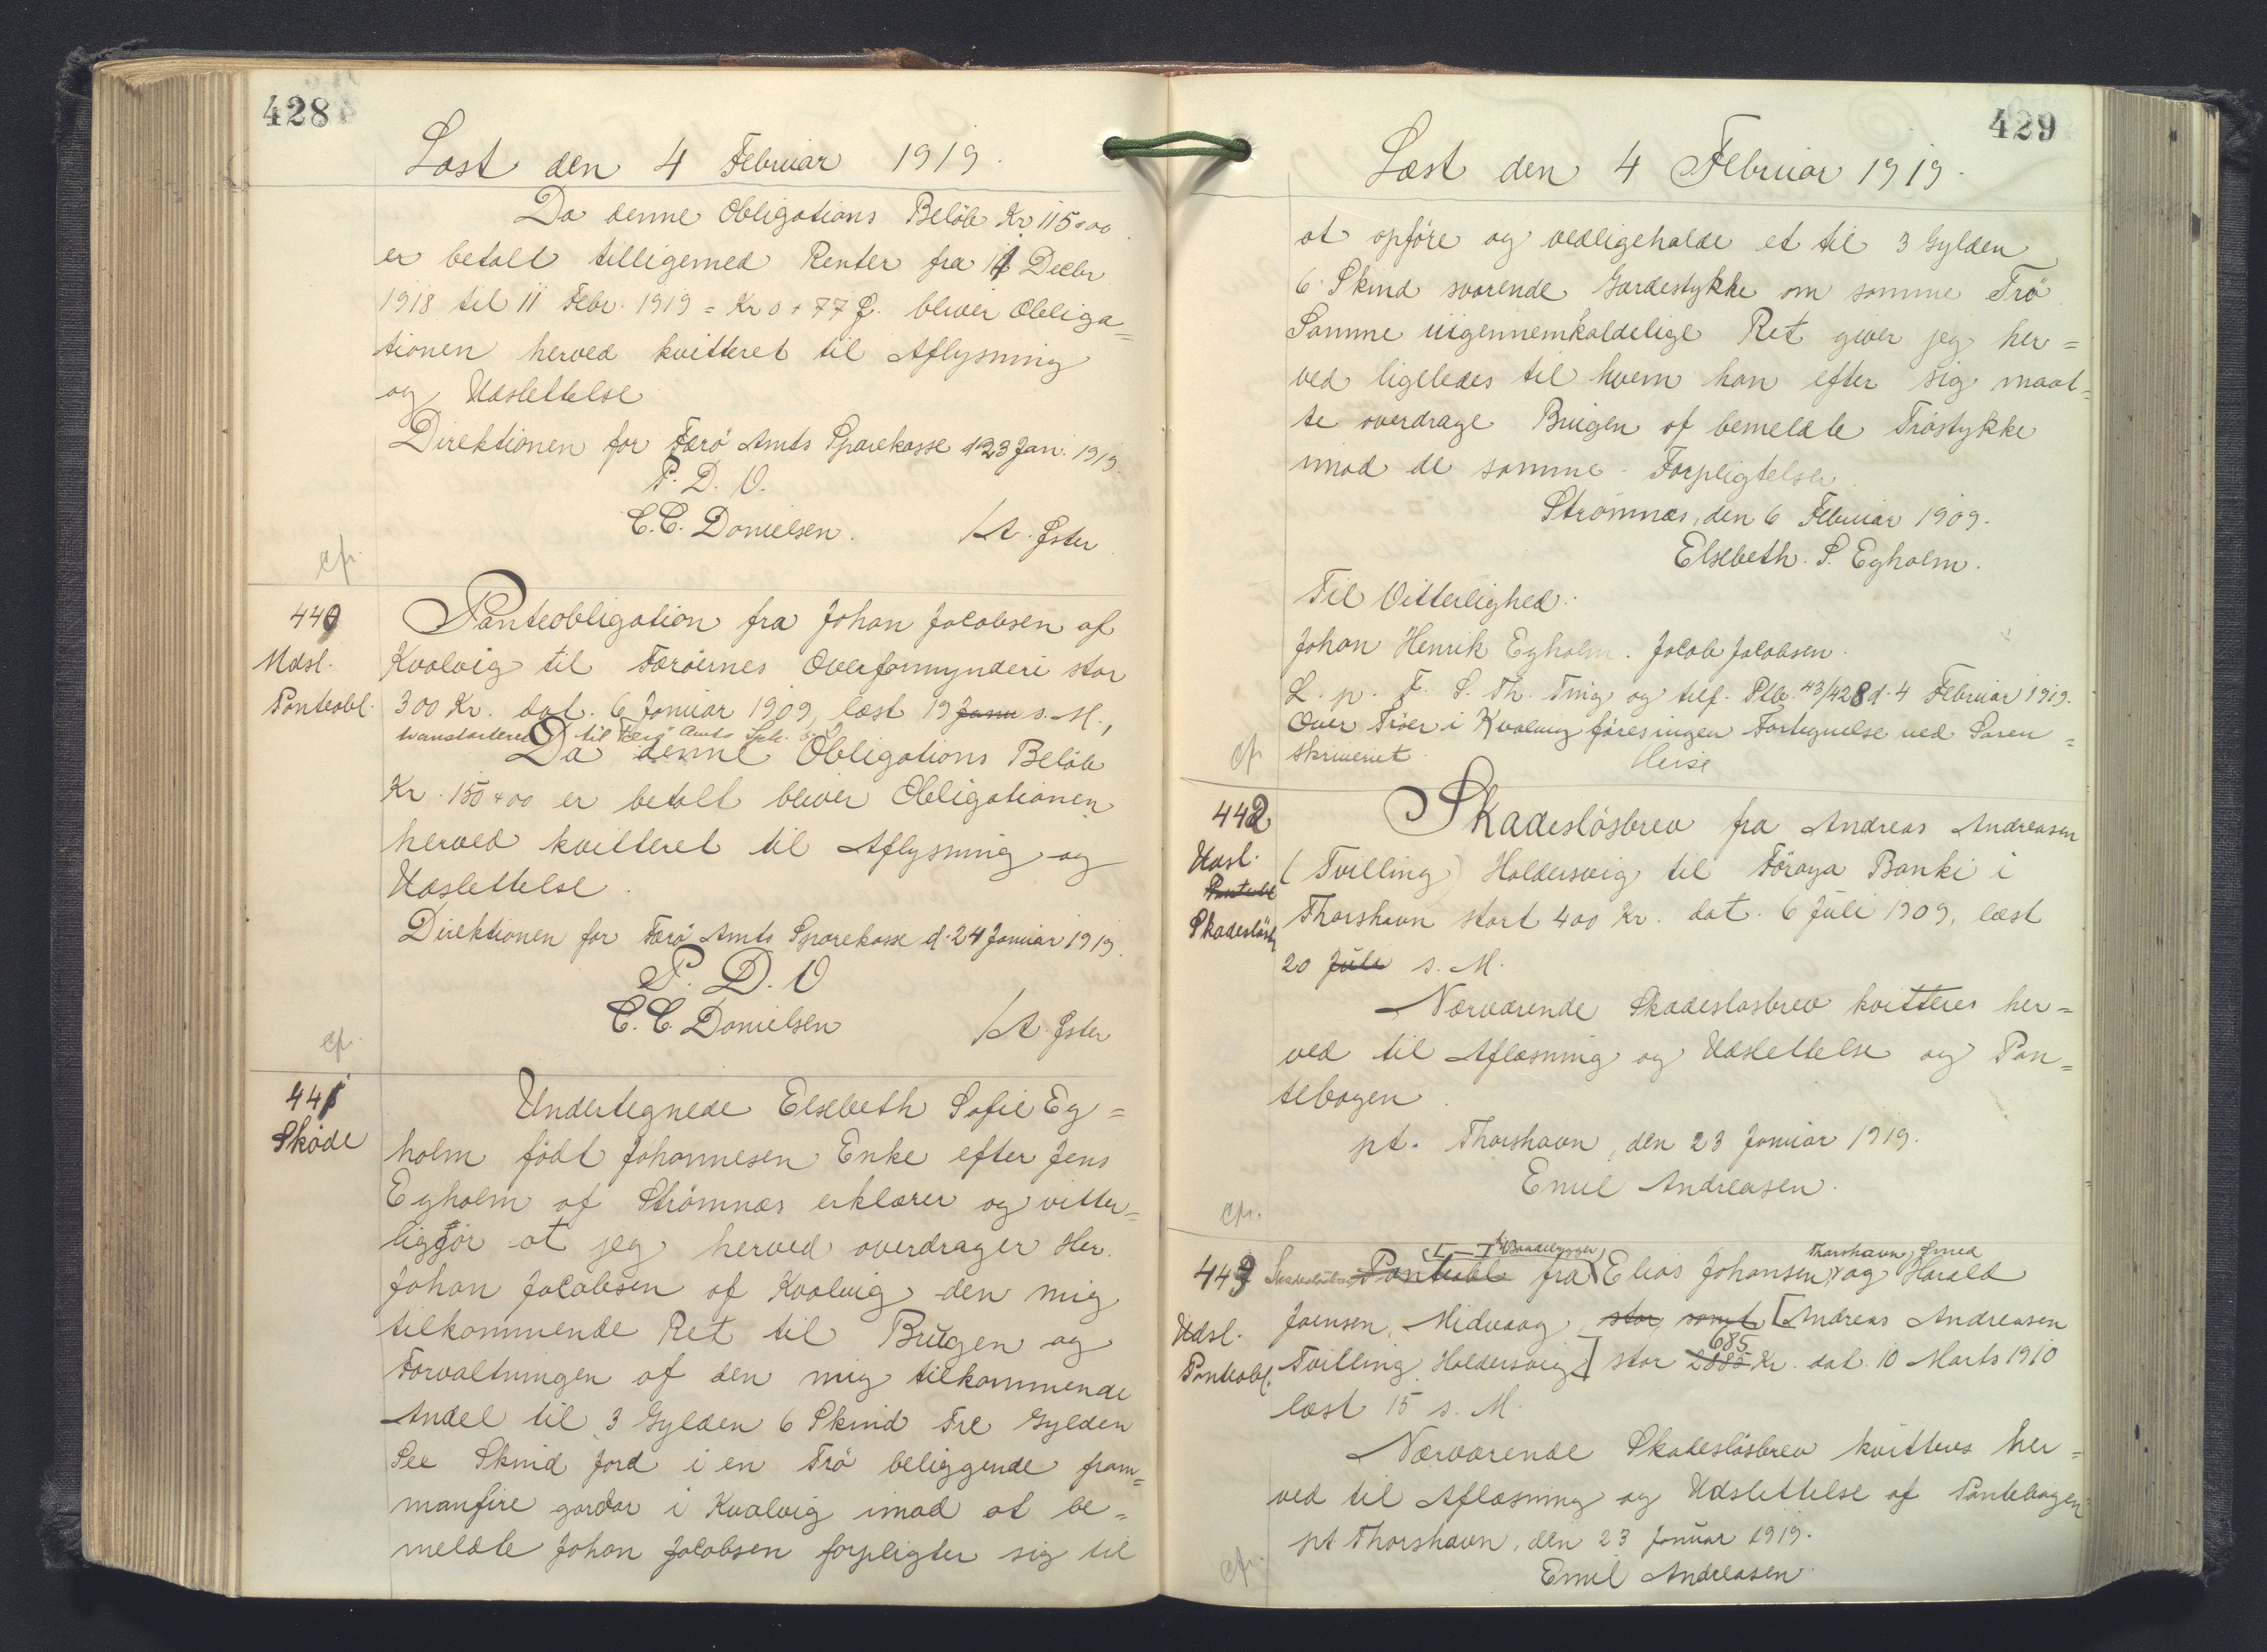 428
Læst den 4 Februar 1919.
Da denne Obligations Beløb Kr 115+00
er betalt tilligemed Renter fra 11 Decbr
1918 til 11 Febr. 1919 = Kr 0+77 Ø. bliver Obliga=
tionen herved kvitteret til Aflysning
og Udslettelse
Direktionen for Færø Amts Sparekasse d. 23 Jan. 1919.
P. D. V.
C.C. Danielsen. / A. Øster
cfr.
440
Udsl.
Panteobl.
Panteobligation fra Johan Jacobsen af
Kvalvig til Færøernes Overformynderi stor
300 Kr. dat. 6 Januar 1909, læst 19 Janu s. M.,
transporteret til Færø Amts Spk.
Da denne Obligations Beløb
Kr. 150+00 er betalt bliver Obligationen
herved kvitteret til Aflysning og
Udslettelse.
Direktionen for Færø Amts Sparekasse d. 24 Januar 1919.
P. D. V
C.C. Danielsen / A. Øster
cfr.
441
Skøde
Undertegnede Elsebeth Sofie Eg=
holm født Johannesen Enke efter Jens
Egholm af Strømnæs erklærer og vitter=
liggør at jeg herved overdrager Hr.
Johan Jacobsen af Kvalvig den mig
tilkommende Ret til Brugen og
Forvaltningen af den mig tilkommende
Andel til 3 Gylden 6 Skind Tre Gylden
Sex Skind Jord i en Trö beliggende fram=
manfire gardar i Kvalvig imod at be=
meldte Johan Jacobsen forpligter sig til
429
Læst den 4 Februar 1919.
at opføre og vedligeholde et til 3 Gylden
6 Skind svarende Gærdestykke om samme Trö.
Samme uigennemkaldelige Ret giver jeg her=
ved ligeledes til hvem han efter sig maat=
te overdrage Brugen af bemeldte Trøstykke
imod de samme Forpligtelser.
Strømnæs, den 6 Februar 1909.
Elsebeth. S. Egholm.
Til Vitterlighed:
Johan Henrik Egholm. Jacob Jacobsen.
L. p. F. S. Th. Ting og tilf. Ptb. 43/428 d. 4 Februar 1919.
Over Trøer i Kvalvig føres ingen Fortegnelse ved Soren=
skriveriet. Heise
cfr
442
Udsl.
Panteobl
Skadesløsbr
Skadesløsbrev fra Andreas Andreasen
(Tvilling) Haldersvig til Føroya Banki i
Thorshavn stort 400 Kr. dat. 6 Juli 1909, læst
20 Juli s. M.
Nærværende Skadesløsbrev kvitteres her=
ved til Aflæsning og Udslettelse og Pan=
tebogen.
pt. Thorshavn, den 23 Januar 1919.
Emil Andreasen.
cfr.
443
Udsl.
Panteobl.
Baadebygger Thorshavn, Smed
Skadesløsbrev Panteobl fra Elias Johansen, og Harald
Joensen, Midvaag, stor samt [Andreas Andreasen
685
Tvilling Haldersvig] stor 2885 Kr. dat. 10 Marts 1910
læst 15 s. M.
Nærværende Skadesløsbrev kvitteres her=
ved til Aflæsning og Udslettelse af Pantebogen
pt Thorshavn, den 23 Januar 1919.
Emil Andreasen
cfr.